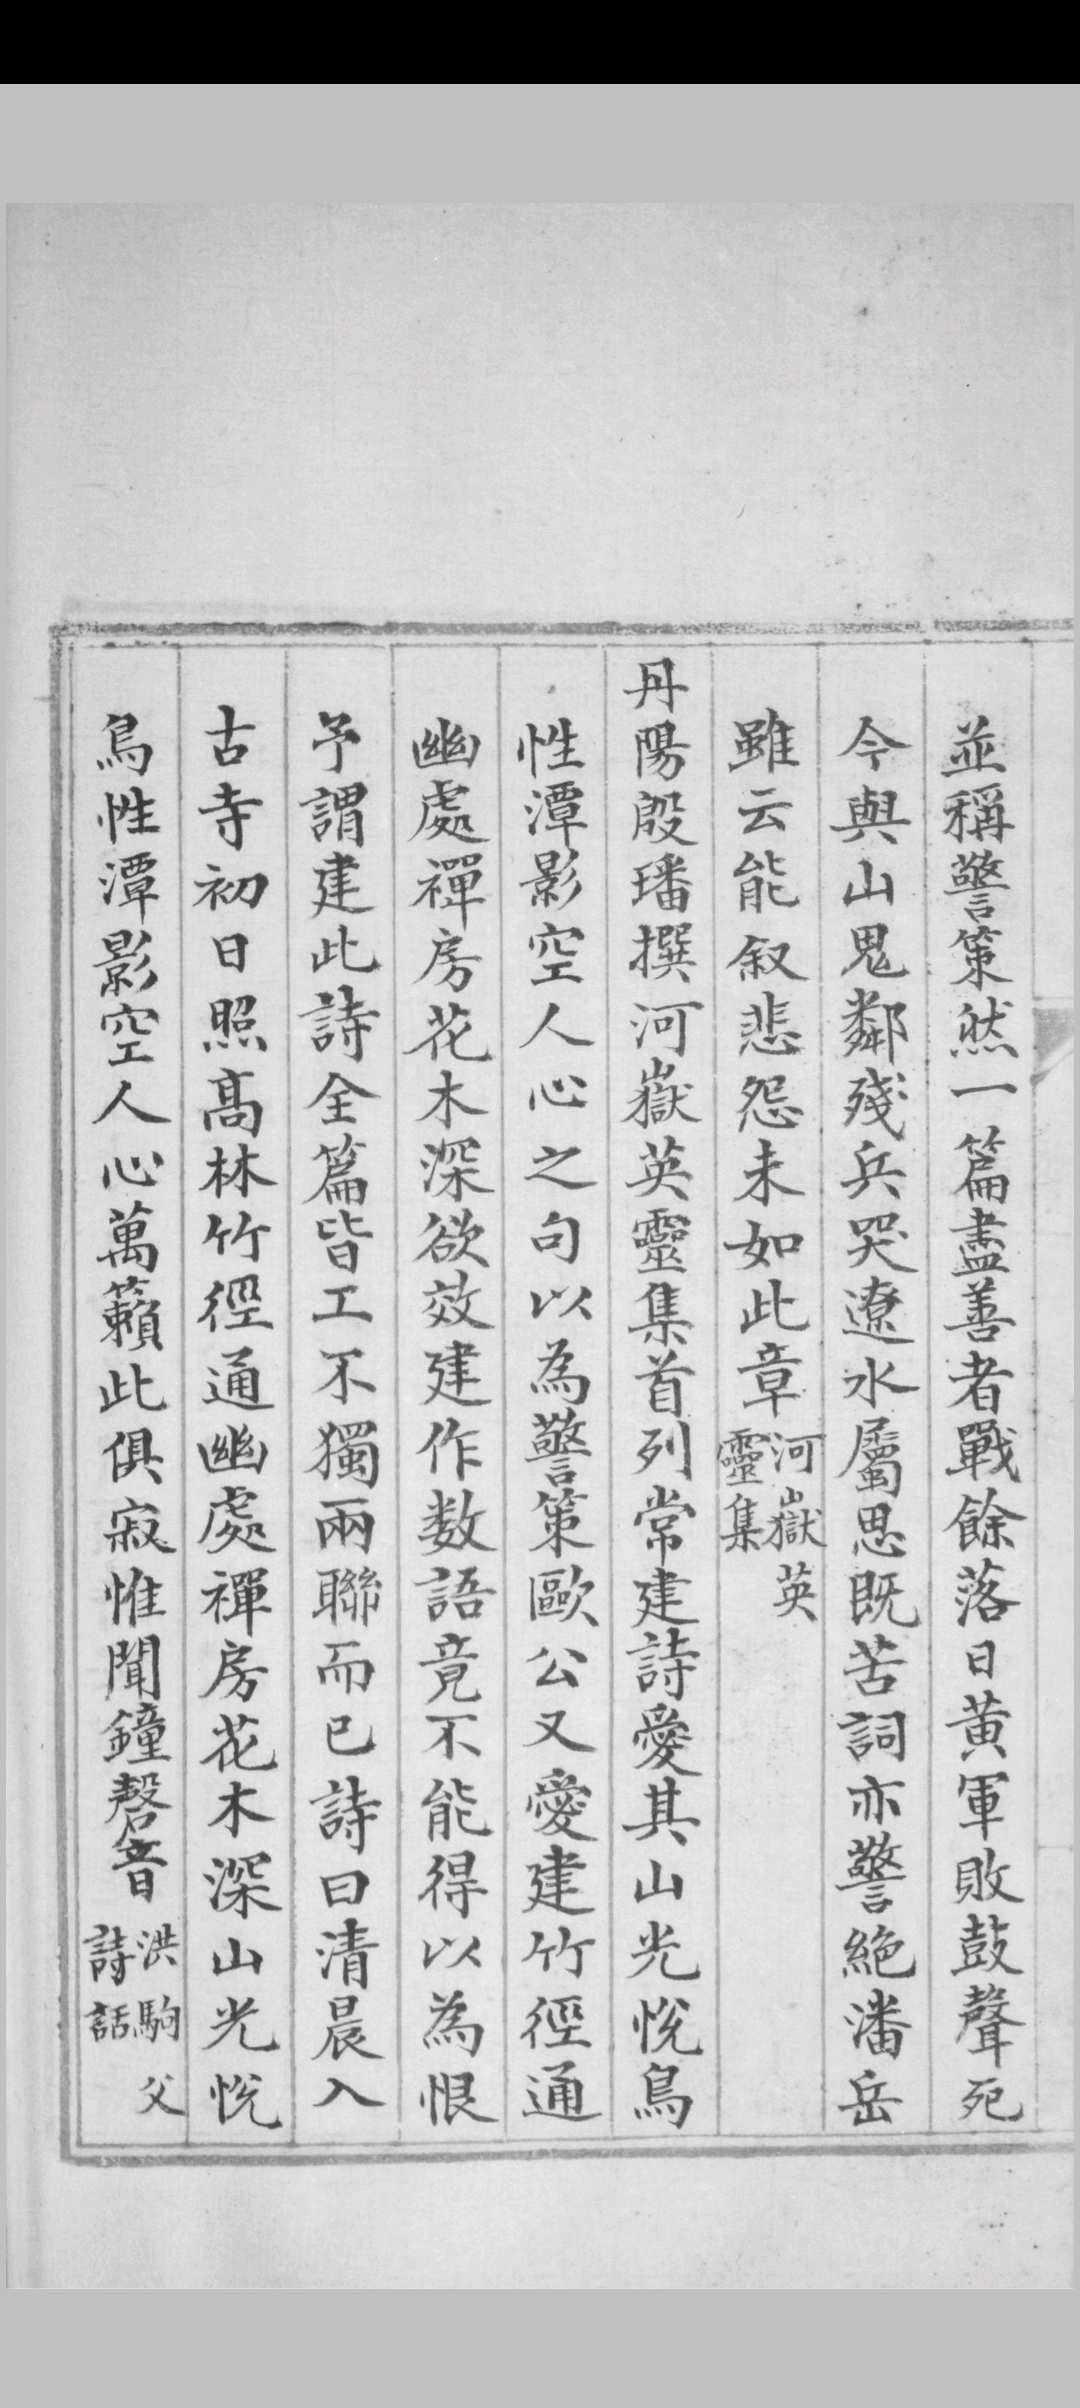 並稱警策然一篇盡善者戰餘落日黄軍敗鼓聲死
今與山鬼鄰殘兵哭遼水屬思既苦詞亦警絶潘岳
雖云能叙悲怨未如此章河嶽英靈集
丹陽殷璠撰河嶽英靈集首列常建詩愛其山光悅鳥
性潭影空人心之句以為警策歐公又愛建竹徑通
幽處禪房花木深欲效建作数語竟不能得以為恨
予謂建此詩全篇皆工不獨兩聯而已詩曰清晨入
古寺初日照高林竹徑通幽處禪房花木深山光悅
鳥性潭影空人心萬籟此俱寂惟聞鐘磬音洪駒父詩話